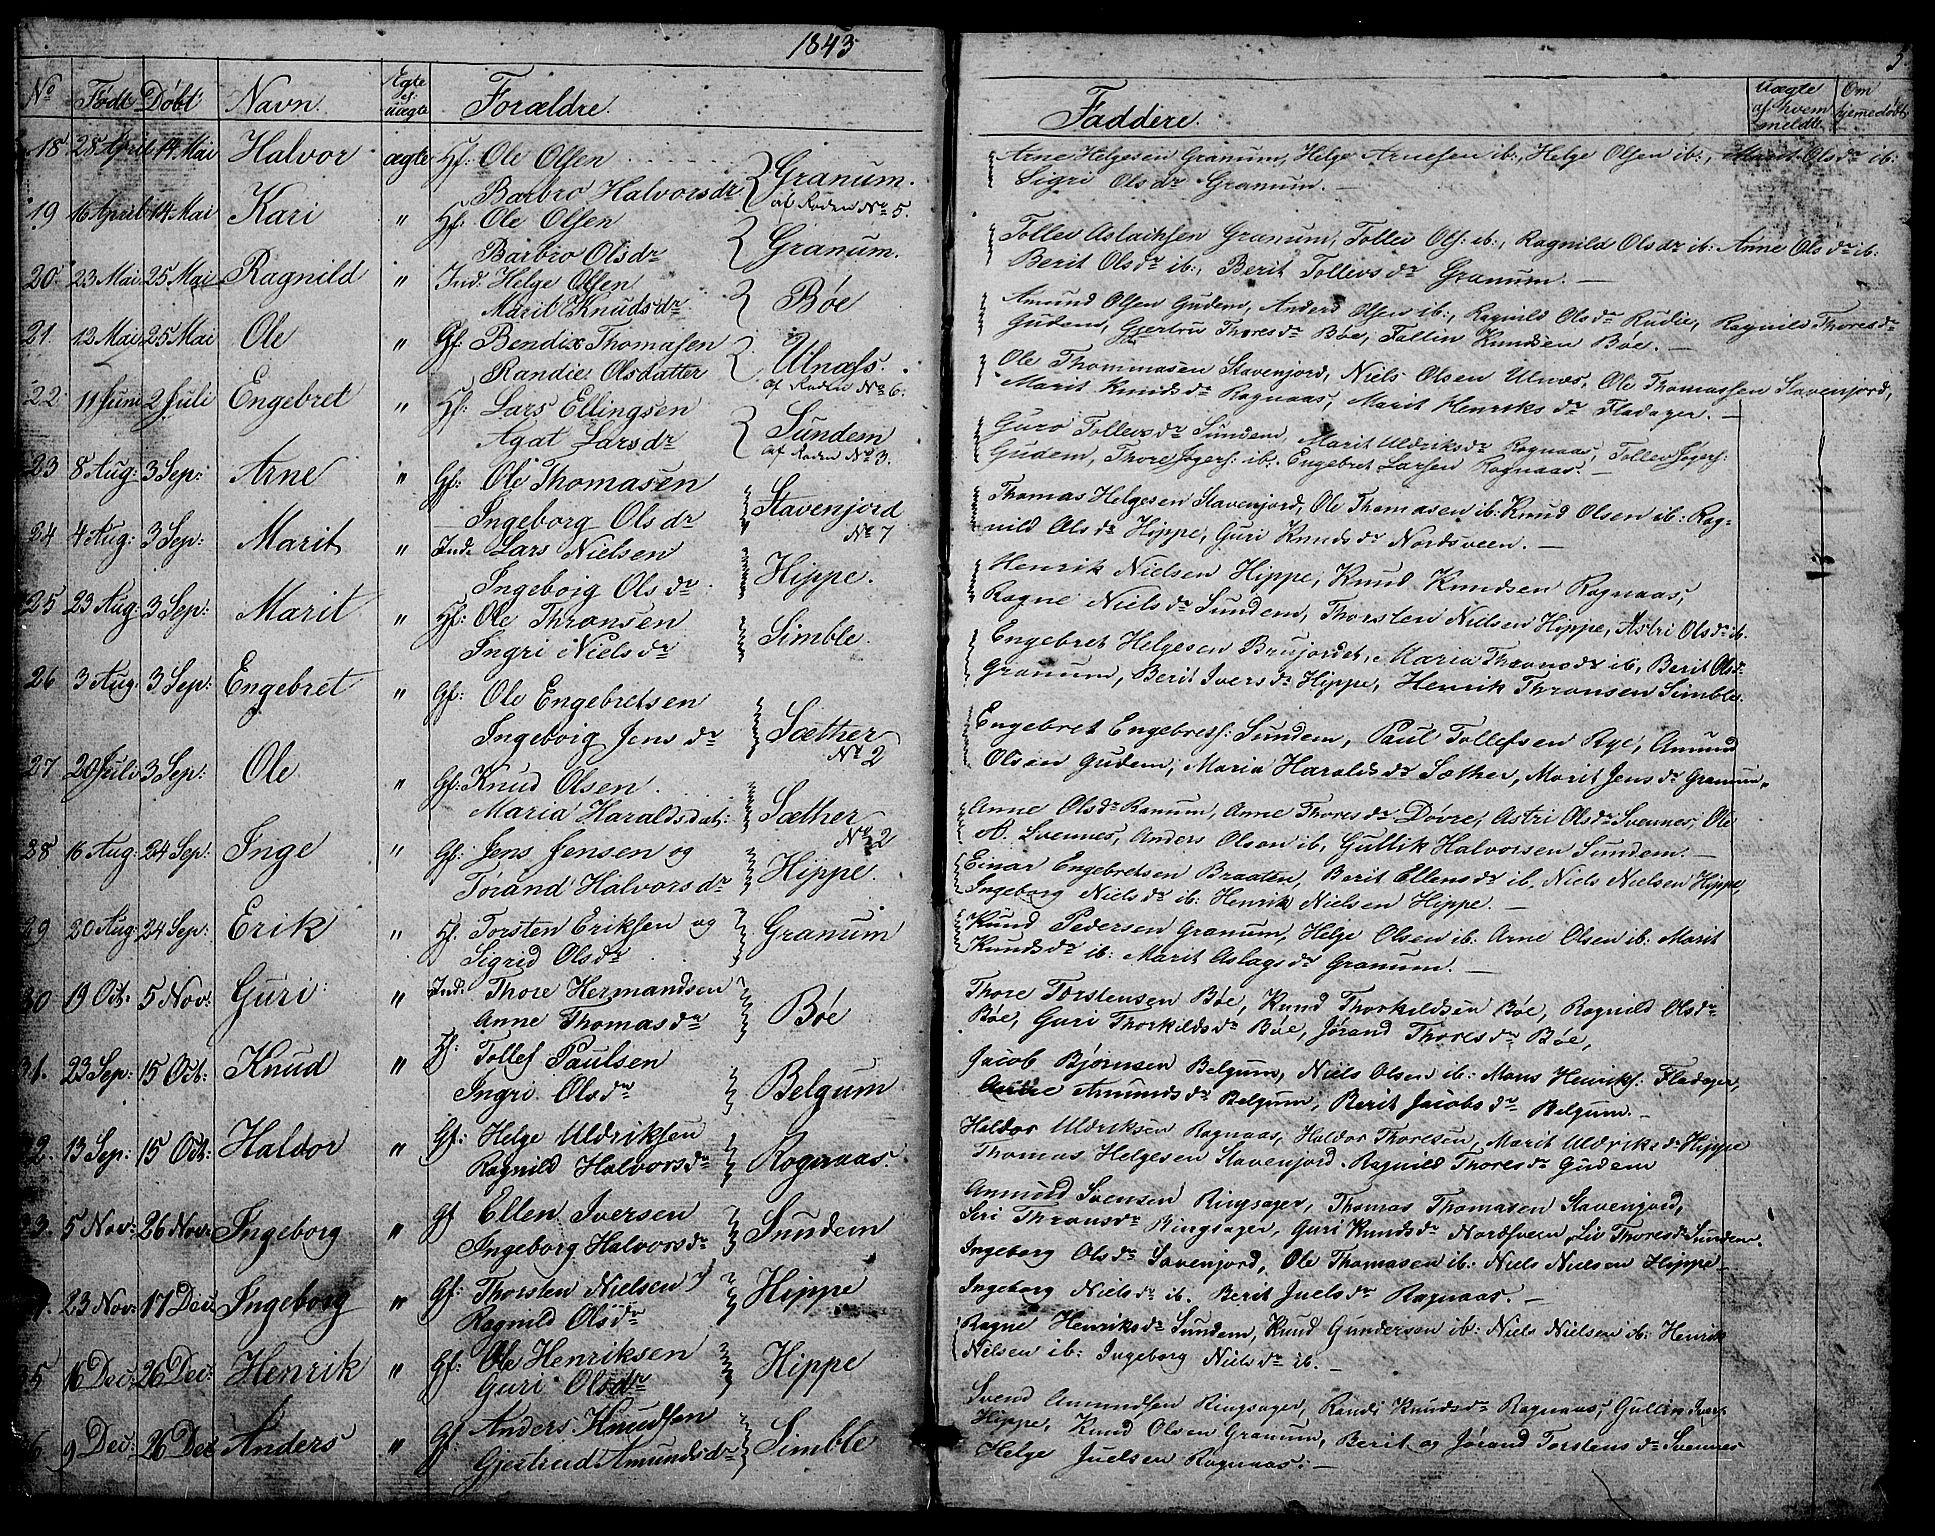 1843
5
No Født Døbt Navn Ægte el: uægte Forældre Faddere Uægte af hvem meldte Om hjemedøbt
18 28 April 14 Mai Halvor ægte Gf: Ole Olsen
Barbro Halvorsdr Granum. af Roden No 5.
Arne Helgesen Granum, Helge Arnesen ib:, Helge Olsen ib:, Marit Olsdr ib:
Sigri Olsdr Granum. —
19 16 April 14 Mai Kari " Gf: Ole Olsen
Barbro Olsdr Granum.
Tollev Aslacksen Granum, Tollev Ols: ib:, Ragnild Olsdr ib: Anne Olsdr ib:
Berit Olsdr ib:, Berit Tollevsdr Granum. —
20 23 Mai 25 Mai Ragnild " Ind: Helge Olsen
Marit Knudsdr Bøe
Amund Olsen Gudem, Anders Olsen ib:, Ragnild Olsdr Rudie, Ragnild Thoresdr
Gudem, Gjertru Thoresdr Bøe, Tollin Knudsen Bøe. —
21 12 Mai 25 Mai Ole " Gf: Bendix Thomasen
Randie Olsdatter Ulnæs. af Roden No 6.
Ole Thommasen Stavenjord, Niels Olsen Ulnæs, Ole Thomassen Stavenjord,
Marit Knudsdr Rognaas, Marit Henriksdr Fladager. —
22 11 Juni 2 Juli Engebret " Gf: Lars Ellingsen
Agat Larsdr Sundem af Roden No 3.
Guro Tollevsdr Sundem, Marit Uldriksdr Rognaas, Tollev
Gudem, Thore ib:, Engebret Larsen Rognaas. —
23 8 Aug: 3 Sep: Arne " Gf: Ole Thomasen
Ingeborg Olsdr Stavenjord No 7
Thomas Helgesen Stavenjord, Ole Thomasen ib: Knud Olsen ib: Rag-
nild Olsdr Hippe, Guri Knudsdr Nordsveen. —
24 4 Aug: 3 Sep: Marit " Ind: Lars Nielsen
Ingeboig Olsdr Hippe.
Henrik Nielsen Hippe, Knud Knudsen Rognaas,
Ragne Nielsdr Sundem, Thorsten Nielsen Hippe, Astri Olsdr ib.
25 23 Aug: 3 Sep: Marit " Gf: Ole Thronsen
Ingri Nielsdr Simble
Engebret Helgesen Brujordet, Maria Thronsdr ib, Berit Olsdr
Granum, Berit Iversdr Hippe, Henrik Thronsen Simble.
26 3 Aug: 3 Sep: Engebret " Gf: Ole Engebretsen
Ingeboig Jensdr Sæther No 2
Engebret Engebrets: Sundem, Paul Tollefsen Rye, Amund
Olsen Gudem, Maria Haraldsdr Sæther, Marit Jensdr Granum,
27 20 Juli 3 Sep: Ole " Gf: Knud Olsen
Maria Haraldsdat: Sæther No 2
Anne Olsdr Ranum, Anne Thoresdr Dovre, Astri Olsdr Svennes, Ole
A. Svennes, Anders Olsen ib, Gullik Halvorsen Sundem. —
28 16 Aug: 24 Sep: Inge " Gf: Jens Jensen og
Torand Halvorsdr Hippe.
Einar Engebretsen Braaten, Berit Ellensdr ib. Niels Nielsen Hippe,
Ingeborg Nielsdr ib: Henrik Nielsen Hippe. —
29 20 Aug: 24 Sep: Erik " Gf: Torsten Eriksen og
Sigrid Olsdr Granum
Knud Pedersen Granum, Helge Olsen ib: Arne Olsen ib: Marit
Knudsdr ib: Marit Aslagsdr Granum. —
30 19 Oct. 5 Nov: Guri " Ind: Thore Hermandsen
Anne Thomasdr Bøe
Thore Torstensen Bøe, Knud Thorkildsen Bøe, Ragnild Olsdr
Bøe, Guri Thorkildsdr Bøe, Jørand Thoresdr Bøe,
31. 23 Sep: 15 Oct: Knud " Gf: Tollef Paulsen
Ingri Olsdr Belgum
Jacob Bjørnsen Belgum, Niels Olsen ib: Mons Henriks: Fladager,
Amundsdr Belgum, Berit Jacobsdr Belgum. —
32. 13 Sep: 15 Oct: Haldor " Gf: Helge Uldriksen
Ragnild Halvorsdr Rognaas.
Haldor Uldriksen Rognaas, Haldor Thoresen, Marit Uldriksdr Hippe
Thomas Helgesen Stavenjord. Ragnild Thoresdr Gudem
33. 5 Nov: 26 Nov: Ingeborg " Gf Ellen Iversen
Ingeborg Halvorsdr Sundem
Amund Svensen Ringsager, Thomas Thomasen Stavenjord,
Siri Thronsdr Ringsager, Guri Knudsdr Nordsveen, Liv Thoresdr Sundem.
34. 23 Nov: 17 Dec: Ingeborg " Gf: Thorsten Nielsen
Ragnild Olsdr Hippe
Ingeborg Olsdr Savenjord, Ole Thomasen ib: Niels Nielsen Hippe
Ingeborg Nielsdr ib. Berit Juelsdr Rognaas. —
35 16 Dec: 26 Dec: Henrik " Gf: Ole Henriksen
Guri Olsdr Hippe
Ragne Henriksdr Sundem, Knud Gundersen ib: Niels Nielsen ib: Henrik
Nielsen ib: Ingeborg Nielsdr ib. —
36 9 Dec: 26 Dec Anders " Gf: Anders Knudsen
Gjertrud Amundsdr Simble
Svend Amundsen Ringsager, Randi Knudsdr Rognaas, Gullin Ivers
Hippe, Knud Olsen Granum, Berit og Jørand Torstensdr Svennes
Helge Juelsen Rognaas: —